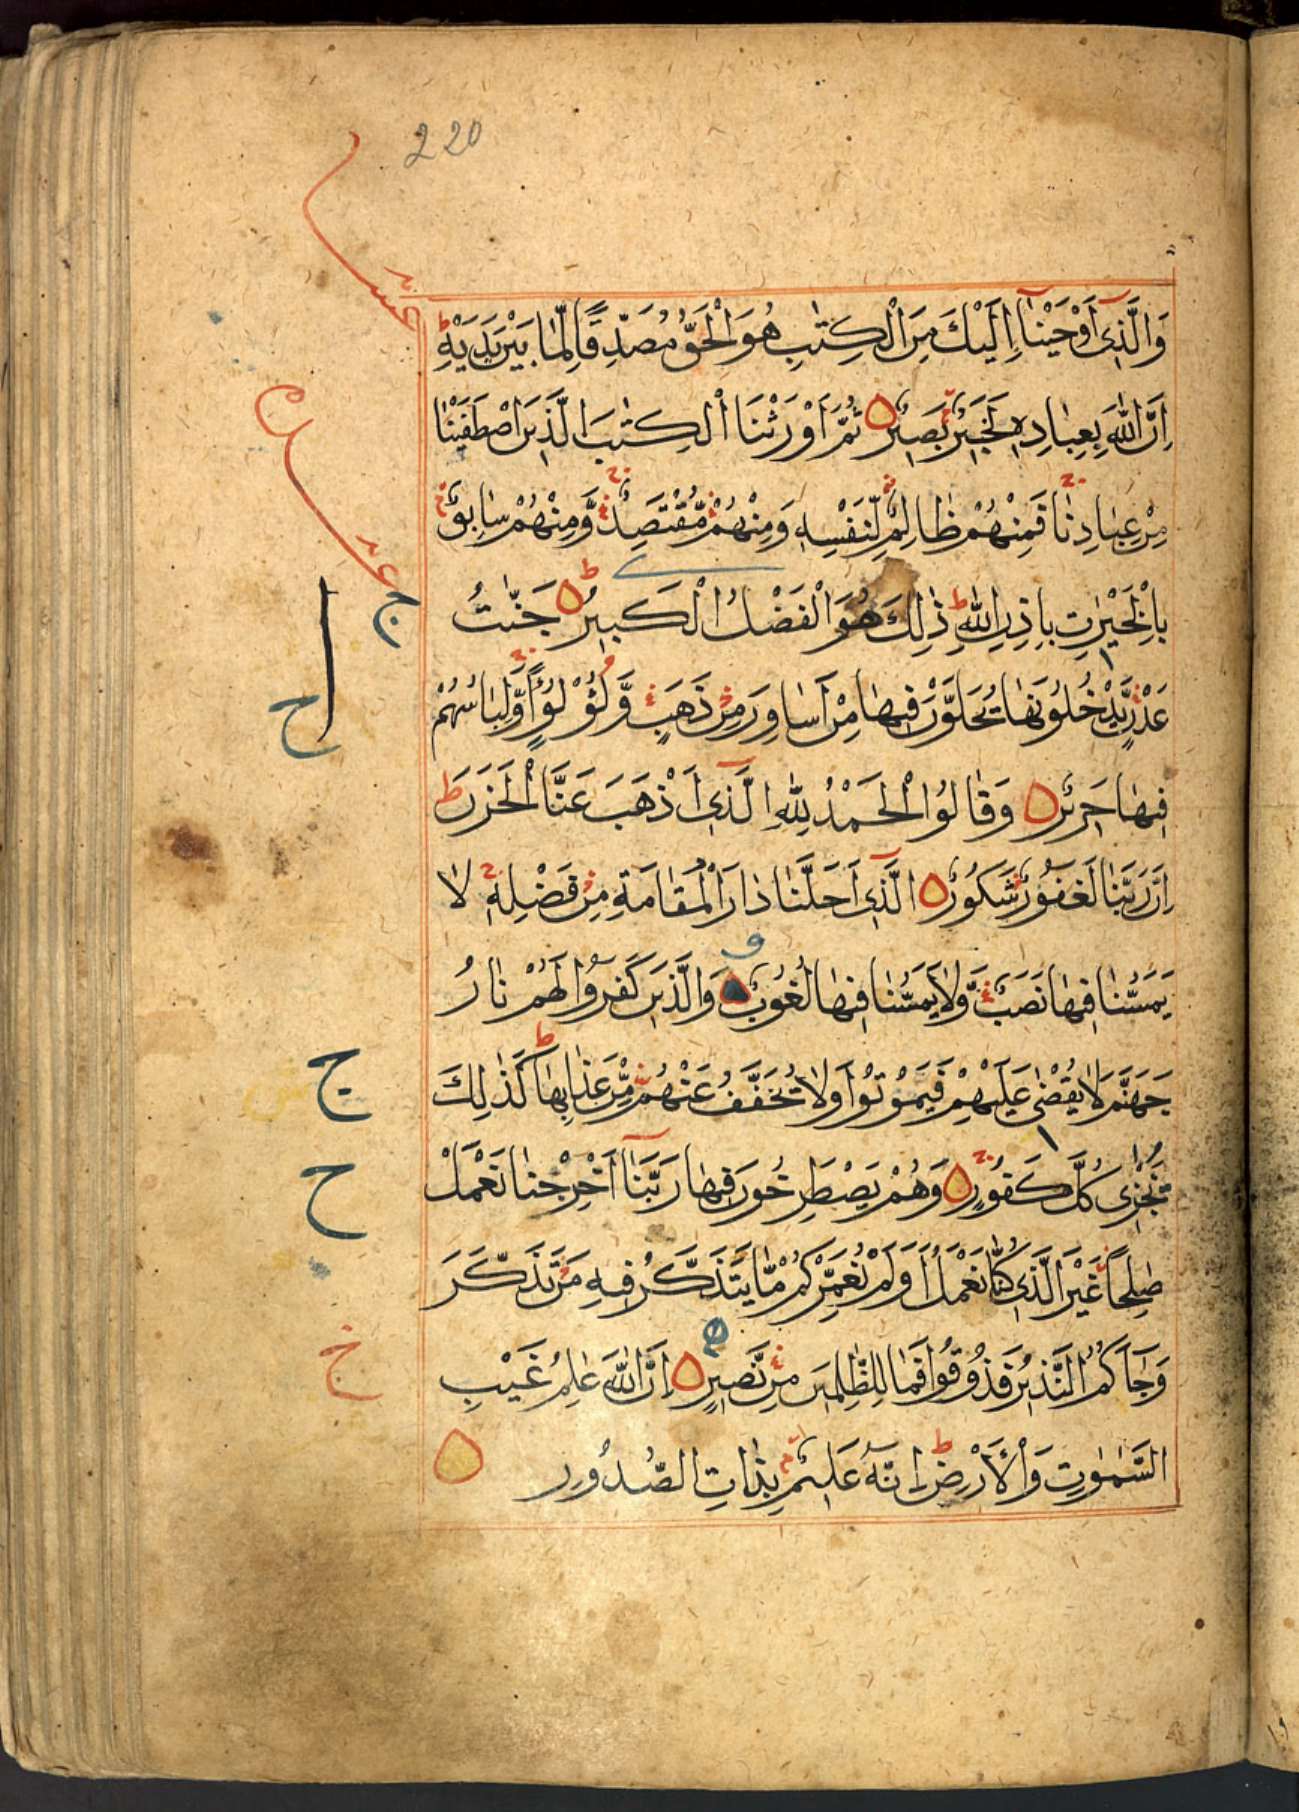 220
وَالَّذِى اَوْحَيْنَآ اِلَيْكَ مِنَ الْكِتٰبِ هُوَ الْحَقُّ مُصَدِّقًا لِّمَا بَيْنَ يَدَيْهِ ط
اِنَّ اللّٰهَ بِعِبَادِهٖ لَخَبِيْرٌ بَصِيْرٌ ثُمَّ اَوْرَثْنَا الْكِتٰبَ الَّذِيْنَ اصْطَفَيْنَا
مِنْ عِبَادِنَا فَمِنْهُمْ ظَالِمٌ لِّنَفْسِهٖ وَمِنْهُمْ مُّقْتَصِدٌ وَّمِنْهُمْ سَابِقٌ
بِالْخَيْرٰتِ بِاِذْنِ اللّٰهِ ط ذٰلِكَ هُوَ الْفَضْلُ الْكَبِيْرُ ط جَنّٰتُ
عَدْنٍ يَّدْخُلُوْنَهَا يُحَلَّوْنَ فِيْهَا مِنْ اَسَاوِرَ مِنْ ذَهَبٍ وَّلُؤْلُؤًا وَّلِبَاسُهُمْ
فِيْهَا حَرِيْرٌ وَقَالُوا الْحَمْدُ لِلّٰهِ الَّذِىٓ اَذْهَبَ عَنَّا الْحَزَنَ ط
اِنَّ رَبَّنَا لَغَفُوْرٌ شَكُوْرٌ الَّذِىٓ اَحَلَّنَا دَارَ الْمُقَامَةِ مِنْ فَضْلِهٖ لَا
يَمَسُّنَا فِيْهَا نَصَبٌ وَّلَا يَمَسُّنَا فِيْهَا لُغُوْبٌ وَالَّذِيْنَ كَفَرُوْا لَهُمْ نَارُ
جَهَنَّمَ لَا يُقْضٰى عَلَيْهِمْ فَيَمُوْتُوْا وَلَا يُخَفَّفُ عَنْهُمْ مِّنْ عَذَابِهَا ط كَذٰلِكَ
نَجْزِى كُلَّ كَفُوْرٍ وَهُمْ يَصْطَرِخُوْنَ فِيْهَا رَبَّنَآ اَخْرِجْنَا نَعْمَلْ
صٰلِحًا غَيْرَ الَّذِى كُنَّا نَعْمَلُ اَوَلَمْ نُعَمِّرْكُمْ مَّا يَتَذَكَّرُ فِيْهِ مَنْ تَذَكَّرَ
وَجَآءَكُمُ النَّذِيْرُ فَذُوْقُوْا فَمَا لِلظّٰلِمِيْنَ مِنْ نَّصِيْرٍ اِنَّ اللّٰهَ عٰلِمُ غَيْبِ
السَّمٰوٰتِ وَالْاَرْضِ ط اِنَّهٗ عَلِيْمٌ بِذَاتِ الصُّدُوْرِ